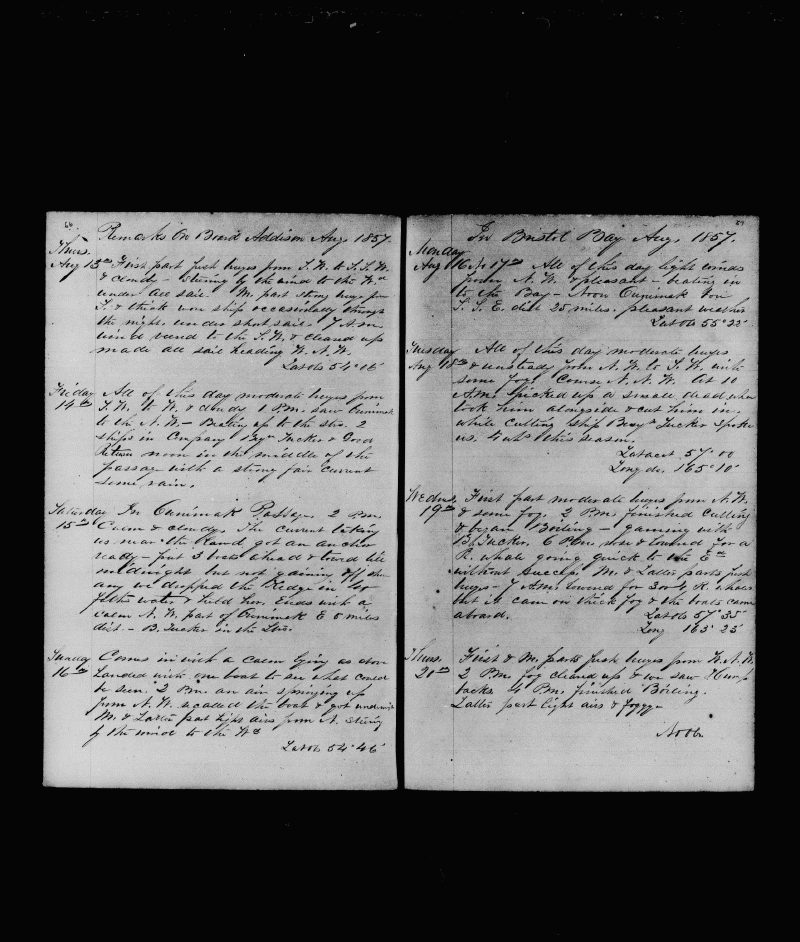 Remarks On Board Addison Aug. 1857.
Thurs.
Aug 13th First part fresh breezes from S. W. to S. S. W.
& cloudy - Steering by the wind to the Wd
under all sail. M. part strong breeze from
S. & thick wore ship occasionally through
the night under short sail. 7 A.m.
wind vered to the S. W. & cleared up
made all sail heading W. N. W.
Lat ob 54° 06'
Friday All of this day moderate breezes from
14th S. W. to W. & cloudy 1 P.M. saw Ounimak
to the N. W. - Beating up to the Strs. 2
ships in Company Benj Tucker & Good
Return noon in the middle of the
passage with a strong fair current
some rain.
Saturday In Ounimak Passage 2 P.m.
15th Calm & cloudy. The current taking
us near the land got an anchor
ready - put 3 boats ahead & towed till
midnight but not gaining off shore
any we dropped the Kedge in 40
fths water & held her. Ends with a
calm N. W. part of Ounimak E 8 miles
dist - B. Tucker in the Strs.
Sunday Comes in with a calm lying as above
16th Landed with one boat to see what could
be seen. 2 P.m. an air springing up
from N. W. recalled the boat & got underway
M. & Latter part light airs from N. steering
by the wind to the Wd
Lat ob 54° 46'
In Bristol Bay Aug. 1857.
Monday
Aug 17th All of this day light winds
from N. W. & pleasant - beating in
to the Bay - Noon Ounimak
S. S. E. dist 25 miles. pleasant weather
Lat ob 55° 22'
Tuesday All of this day moderate breezes
Aug 18th & unsteady from N. W. to S. W. with
some fog. Course N. N. W. At 10
A.m. picked up a small dead whale
took him alongside & cut him in.
while cutting Ship Benj Tucker spoke
us. 4 whs this season.
Lat acct 57° 00
Long do. 165° 10'
Wednes. First part moderate breezes from N. W.
19th & some fog. 2 P.m. finished cutting
& began Boiling - gamming with
B. Tucker. 6 P.m. wore & lowered for a
R. whale going quick to the Ed
without success. M. & Latter parts fresh
breezes - 7 A.m. lowered for 3 or 4 R. whales
but it came on thick fog & the boats came
aboard. Lat ob 57° 35'
Long 165° 25'
Thurs. First & M. parts fresh breezes from W. N. W.
20th 2 P.m. fog cleared up & we saw Hump
backs 4 P.m. finished Boiling.
Latter part light airs & foggy -
No ob.